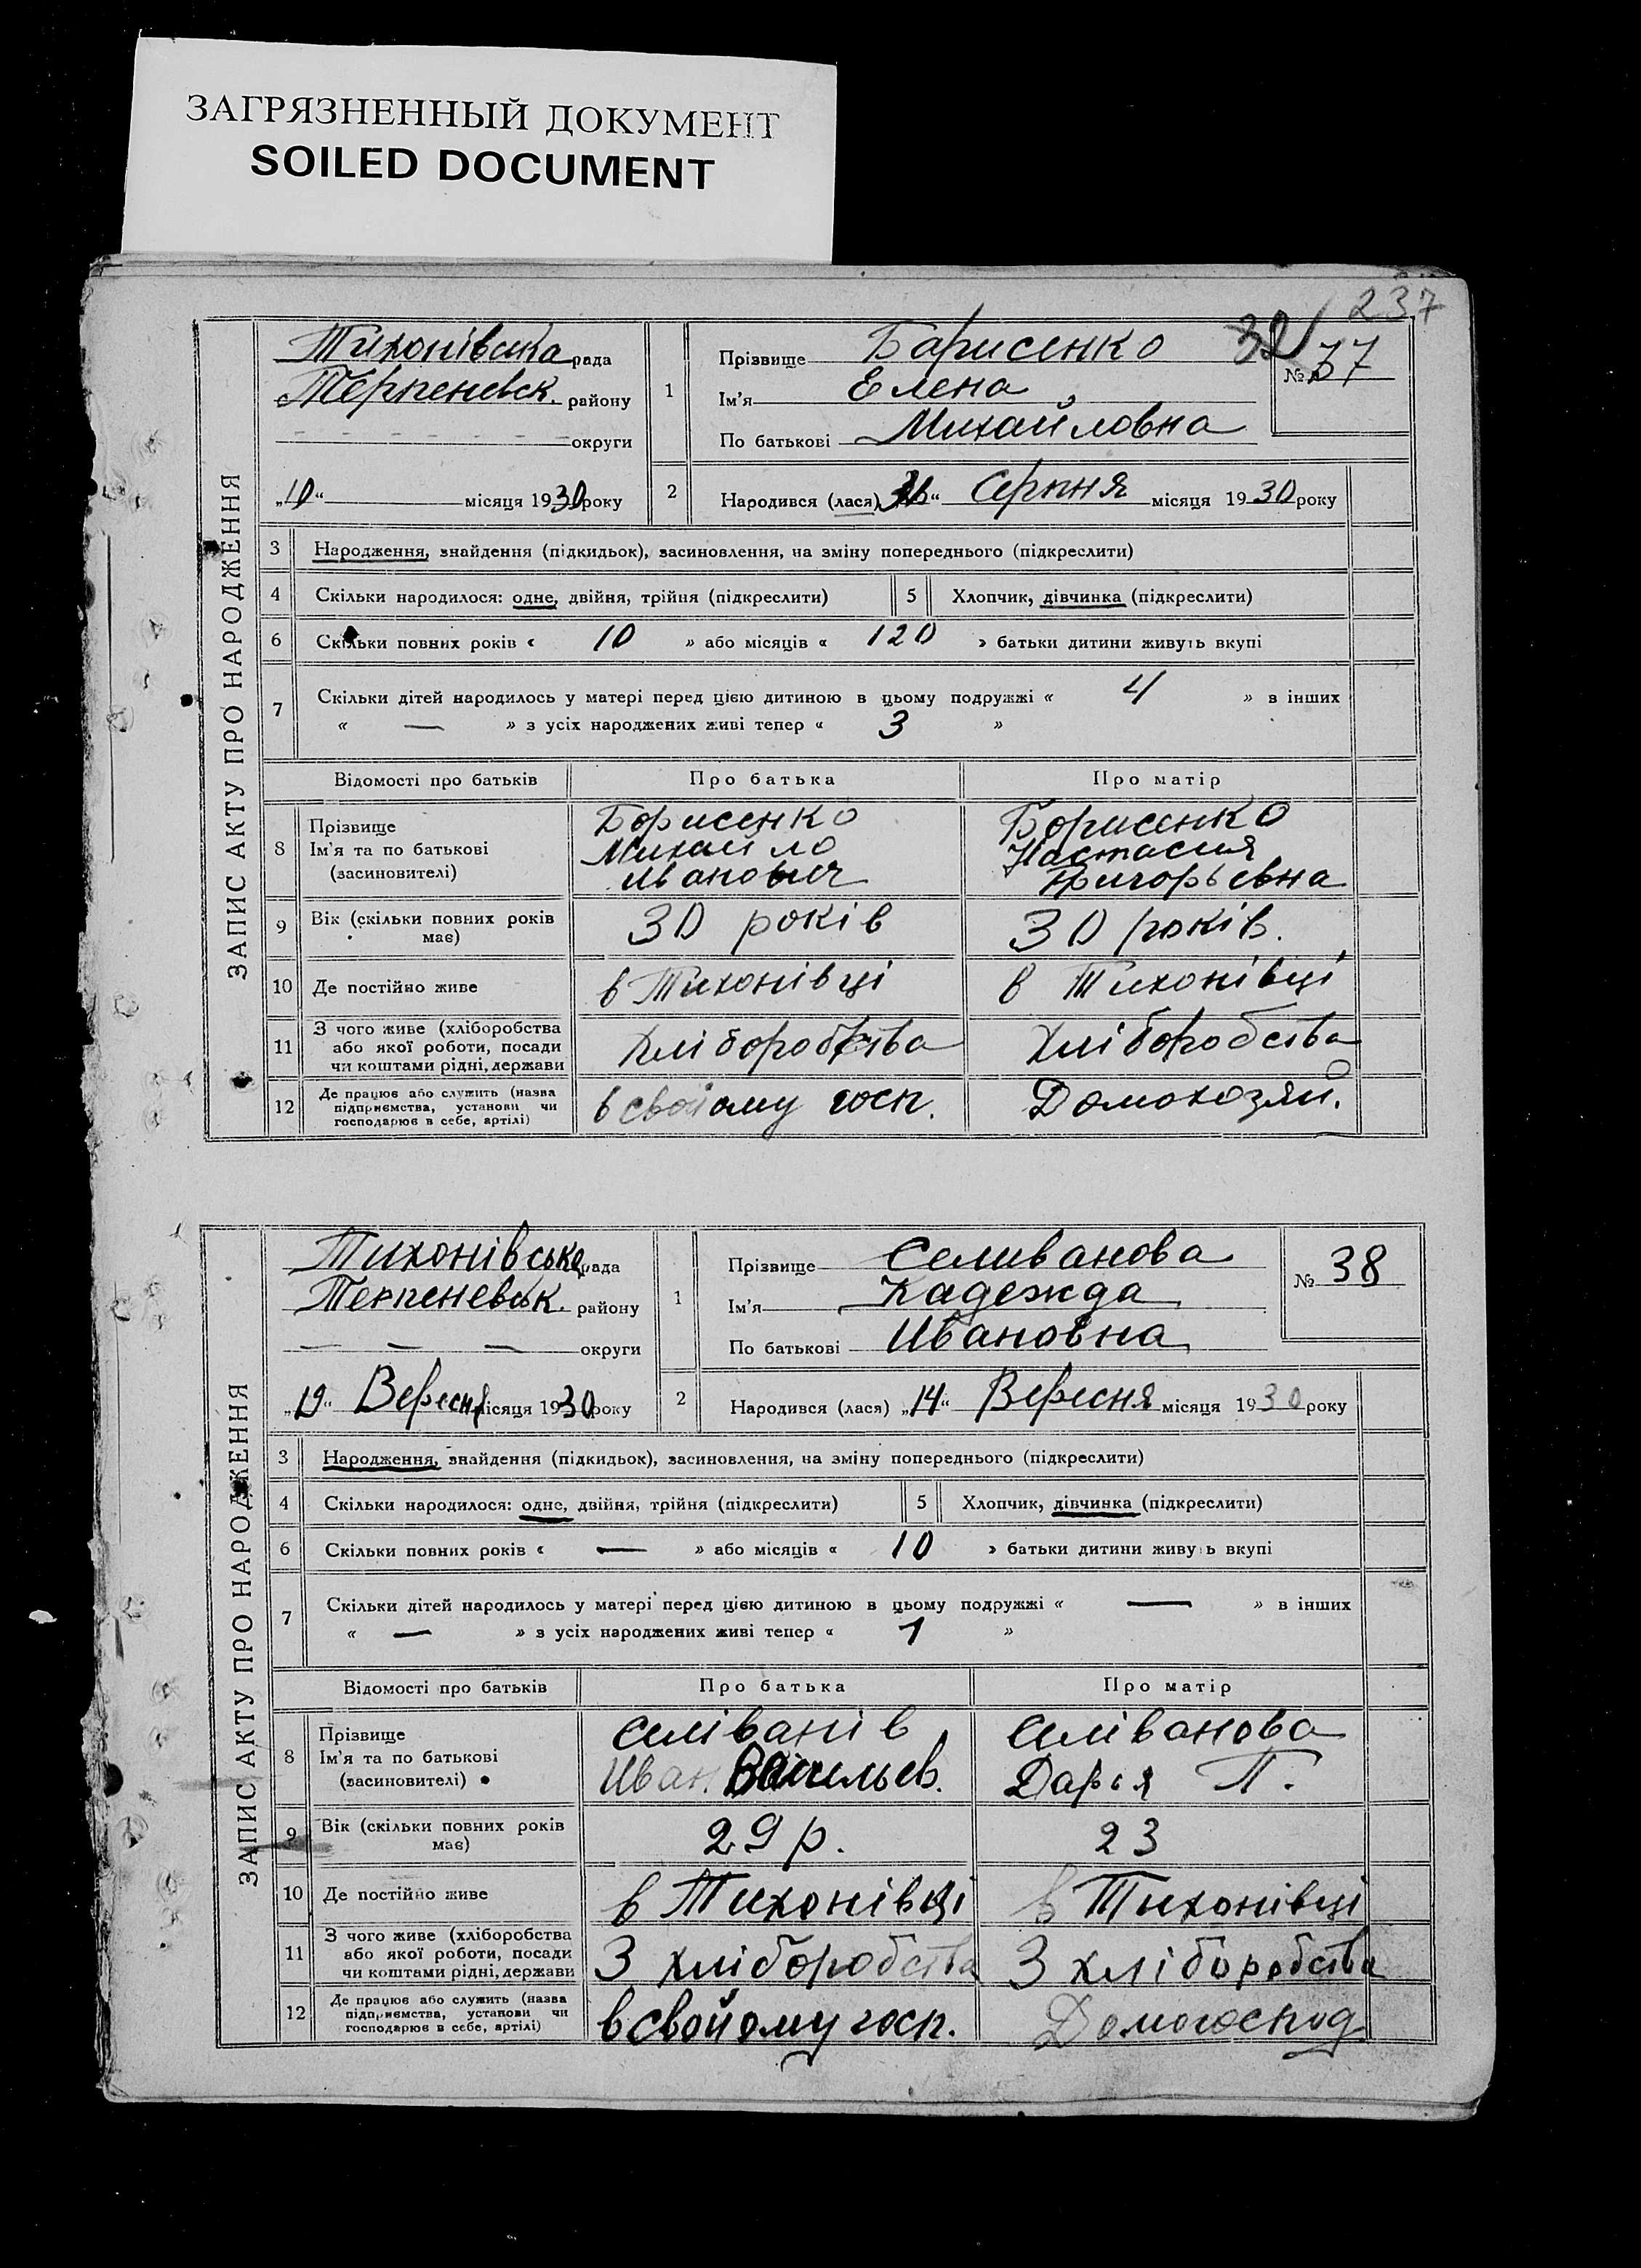 ЗАГРЯЗНЕННЫЙ ДОКУМЕНТ
SOILED DOCUMENT
237
ЗАПИС АКТУ ПРО НАРОДЖЕННЯ
Тихонівська рада
Терпеневск. району
округи
„10“ місяця 1930 року
1 Прізвище Барисенко
Ім'я Елена
По батькові Михайловна
№ 37
2 Народився (лася) Серпня місяця 1930 року
3 Народження, знайдення (підкидьок), засиновлення, на зміну попереднього (підкреслити)
4 Скільки народилося: одне, двійня, трійня (підкреслити) 5 Хлопчик, дівчинка (підкреслити)
6 Скільки повних років « 10 » або місяців « 120 » батьки дитини живуть вкупі
7 Скільки дітей народилось у матері перед цією дитиною в цьому подружжі « 4 » в інших
« — » з усіх народжених живі тепер « 3 »
Відомості про батьків Про батька Про матір
8 Прізвище Борисенко Борисенко
Ім'я та по батькові Михайло Настасия
(засиновителі) Иванович Григорьевна
9 Вік (скільки повних років має) 30 років 30 років.
10 Де постійно живе в Тихонівці в Тихонівці
11 З чого живе (хліборобства
або якої роботи, посади Хліборобства Хліборобства
чи коштами рідні, держави
12 Де працює або служить (назва
підприємства, установи чи в свойому госп. Домохозяй.
господарює в себе, артілі)
ЗАПИС АКТУ ПРО НАРОДЖЕННЯ
Тихонівська рада
Терпеневськ. району
— — — округи
„19“ Вересня місяця 1930 року
1 Прізвище Селиванова
Ім'я Надежда
По батькові Ивановна
№ 38
2 Народився (лася) „14“ Вересня місяця 1930 року
3 Народження, знайдення (підкидьок), засиновлення, на зміну попереднього (підкреслити)
4 Скільки народилося: одне, двійня, трійня (підкреслити) 5 Хлопчик, дівчинка (підкреслити)
6 Скільки повних років « — » або місяців « 10 » батьки дитини живуть вкупі
7 Скільки дітей народилось у матері перед цією дитиною в цьому подружжі « — » в інших
« — » з усіх народжених живі тепер « 1 »
Відомості про батьків Про батька Про матір
8 Прізвище Селіванів Селіванова
Ім'я та по батькові Иван. Васильев. Дарья П.
(засиновителі)
9 Вік (скільки повних років має) 29 р. 23
10 Де постійно живе в Тихонівці в Тихонівці
11 З чого живе (хліборобства
або якої роботи, посади З хліборобства З хліборобства
чи коштами рідні, держави
12 Де працює або служить (назва
підприємства, установи чи в свойому госп. Домогоспод.
господарює в себе, артілі)